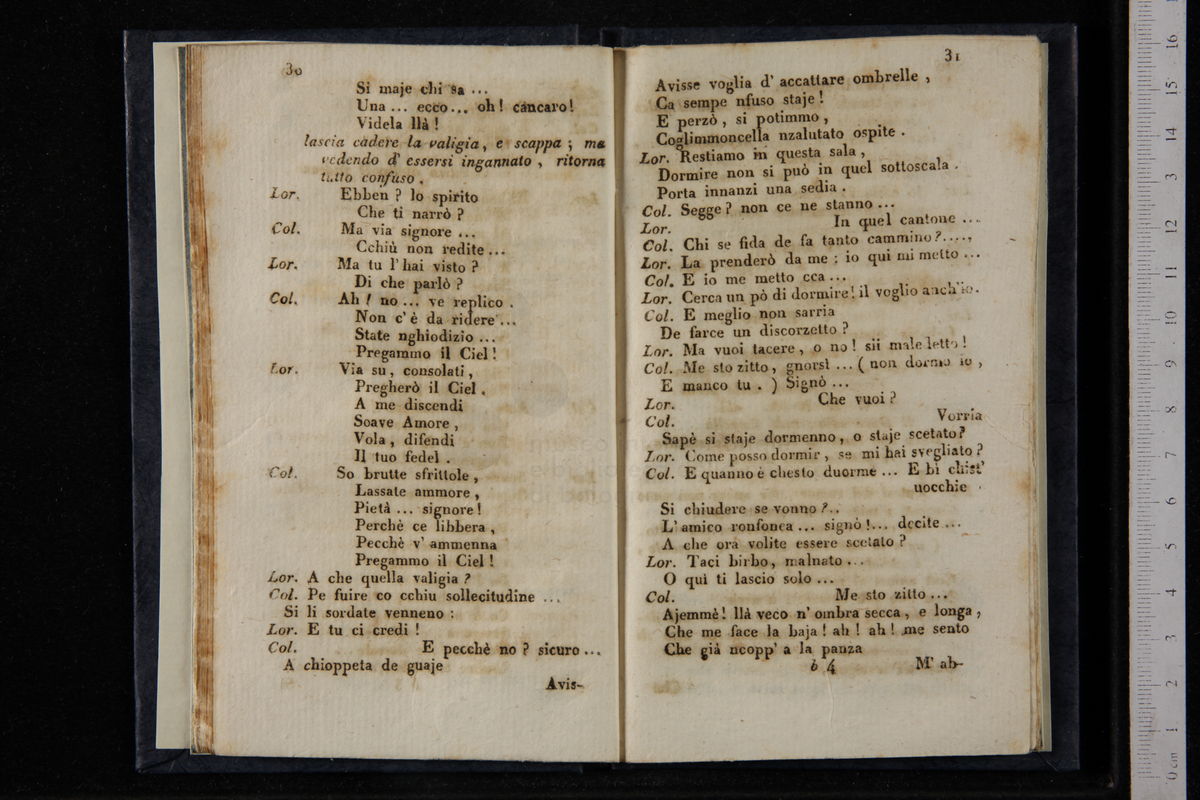 30
Si maje chi sa ...
Una ... ecco... oh! cáncaro!
Videla llà!
lascia cadere la valigia, e scappa; ma
vedendo d' essersi ingannato, ritorna
tutto confuso.
Lor. Ebben? lo spirito
Che ti narrò?
Col. Ma via signore ...
Cchiù non redite...
Lor. Ma tu l'hai visto?
Di che parlò?
Col. Ah! no... ve replico.
Non c'è da ridere...
State nghiodizio ...
Pregammo il Ciel!
Lor. Via su, consolati,
Pregherò il Ciel.
A me discendi
Soave Amore,
Vola, difendi
Il tuo fedel.
Col. So brutte sfrittole,
Lassate ammore,
Pietà ... signore!
Perchè ce libbera,
Pecchè v' ammenna
Pregammo il Ciel!
Lor. A che quella valigia?
Col. Pe fuire co cchiu sollecitudine ...
Si li sordate venneno:
Lor. E tu ci credi!
Col. E pecchè no? sicuro...
A chioppeta de guaje
Avis-
31
Avisse voglia d' accattare ombrelle,
Ca sempe nfuso staje!
E perzò, si potimmo,
Coglimmoncella nzalutato ospite.
Lor. Restiamo in questa sala,
Dormire non si può in quel sottoscala.
Porta innanzi una sedia.
Col. Segge? non ce ne stanno...
Lor. In quel cantone ...
Col. Chi se fida de fa tanto cammino?....,
Lor. La prenderò da me: io qui mi metto ...
Col. E io me metto cca...
Lor. Cerca un pò di dormire! il voglio anch'io.
Col. E meglio non sarria
De farce un discorzetto?
Lor. Ma vuoi tacere, o no! sii maledetto!
Col. Me sto zitto, gnorsì ... ( non dormo io,
E manco tu. ) Signò ...
Lor. Che vuoi?
Col. Vorria
Sapè si staje dormenno, o staje scetato?
Lor. Come posso dormir, se mi hai svegliato?
Col. E quanno è chesto duorme ... E bì chist'
uocchie
Si chiudere se vonno?..
L' amico ronfonea ... signò!... decite ...
A che ora volite essere scetato?
Lor. Taci birbo, malnato...
O quì ti lascio solo ...
Col. Me sto zitto...
Ajemmè! llà veco n' ombra secca, e longa,
Che me face la baja! ah! ah! me sento
Che già ncopp' a la panza
b 4 M' ab-
0 cm 1 2 3 4 5 6 7 8 9 10 11 12 13 14 15 16